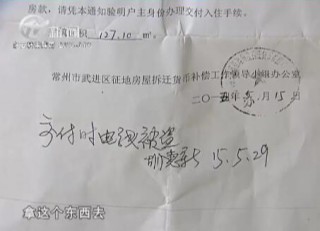 房款，请凭本通知验明户主身份办理交付入住手续。
127.10 ㎡。
常州市武进区征地房屋拆迁货币补偿工作领导小组办公室
二〇一五年 5 月 15 日
交付时电线被盗
15.5.29
拿这个东西去